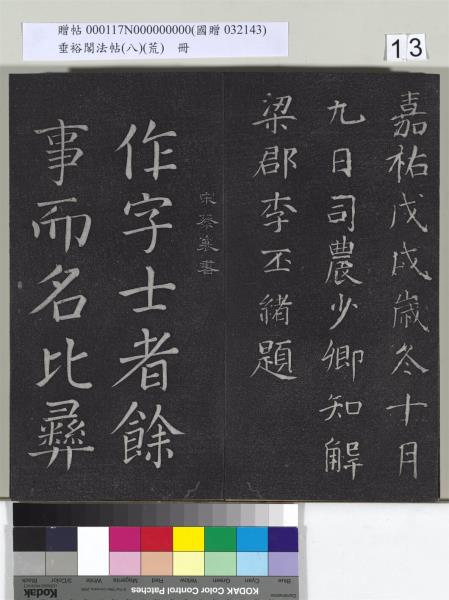 贈帖 000117N000000000(國贈 032143)
垂裕閣法帖(八)(荒) 冊
13
嘉祐戊戌歲冬十月
九日司農少卿知解
梁郡李丕緒題
宋蔡襄書
作字士者餘
事而名比彝
Blue
Cyan
Green
Yellow
Red
Magenta
White
3/Color
Black
KODAK Color Control Patches